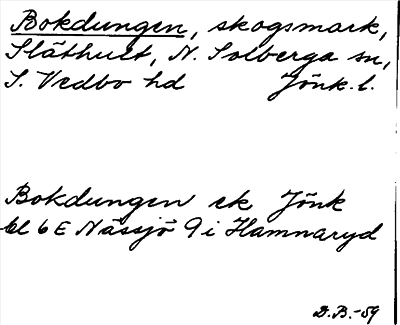 Bokdungen, skogsmark,
Släthult, N. Solberga sn,
S. Vedbo hd Jönk. l.
Bokdungen ek Jönk
bl 6E Nässjö 9i Hamnaryd
D.B.-59